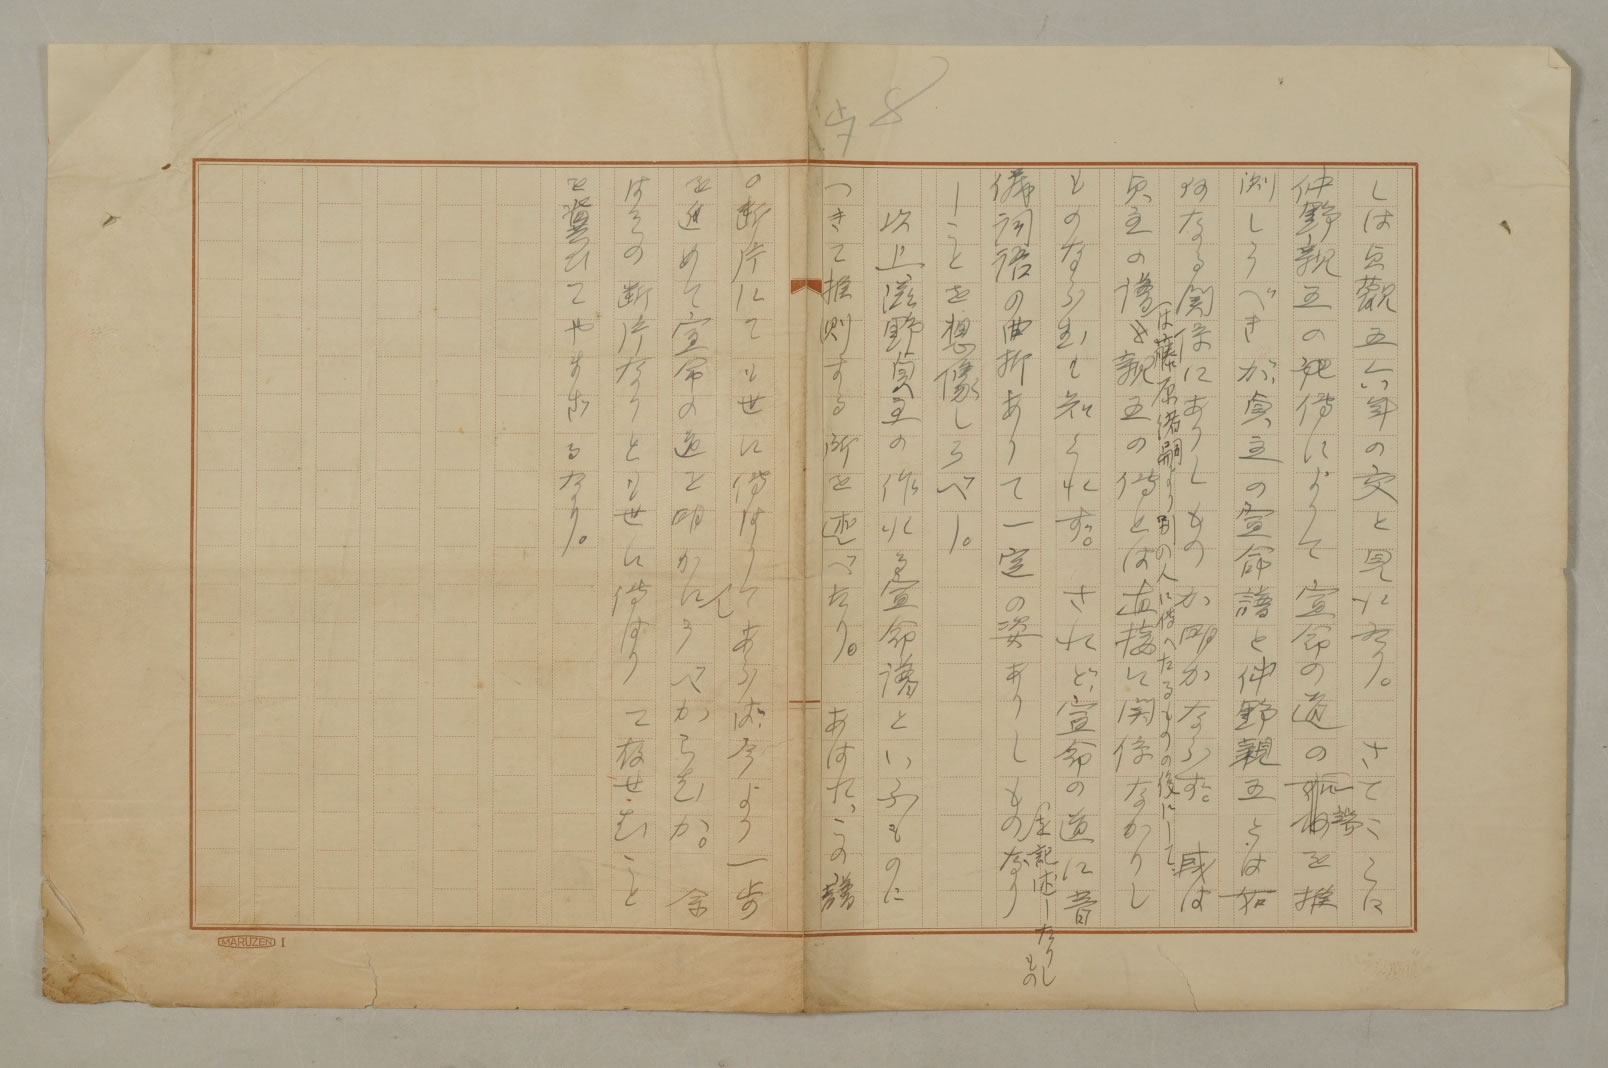 しは貞観五六年の交と見れなり。さてここに
仲野親王の死傳によりて宣命の道の推
測しうべきが貞主の宣命譜と仲野親王とは如
何なる関係にありしものか明かならず。或は
は藤原緒嗣より別の人に傳へたるものの後にして
貞主の譜を親王の傳とは直接に関係なかりし
ものならむも知られず。されど宣命の道に音
儀詞語の曲折ありて一定の姿ありしものなり
を記述したりしもの
しことを想像しうべし。
以上滋野貞主の作れる宣命譜といふものに
つきて推測する所を述べたり。あはれ、この譜
の断片にても世に傳はりてあらば、今より一歩
を進めて宣命の道を明かにしうべからむか。余
はその断片なりとも世に傳はりて存せむこと
を冀ひてやまざるなり。
8
MARUZEN I